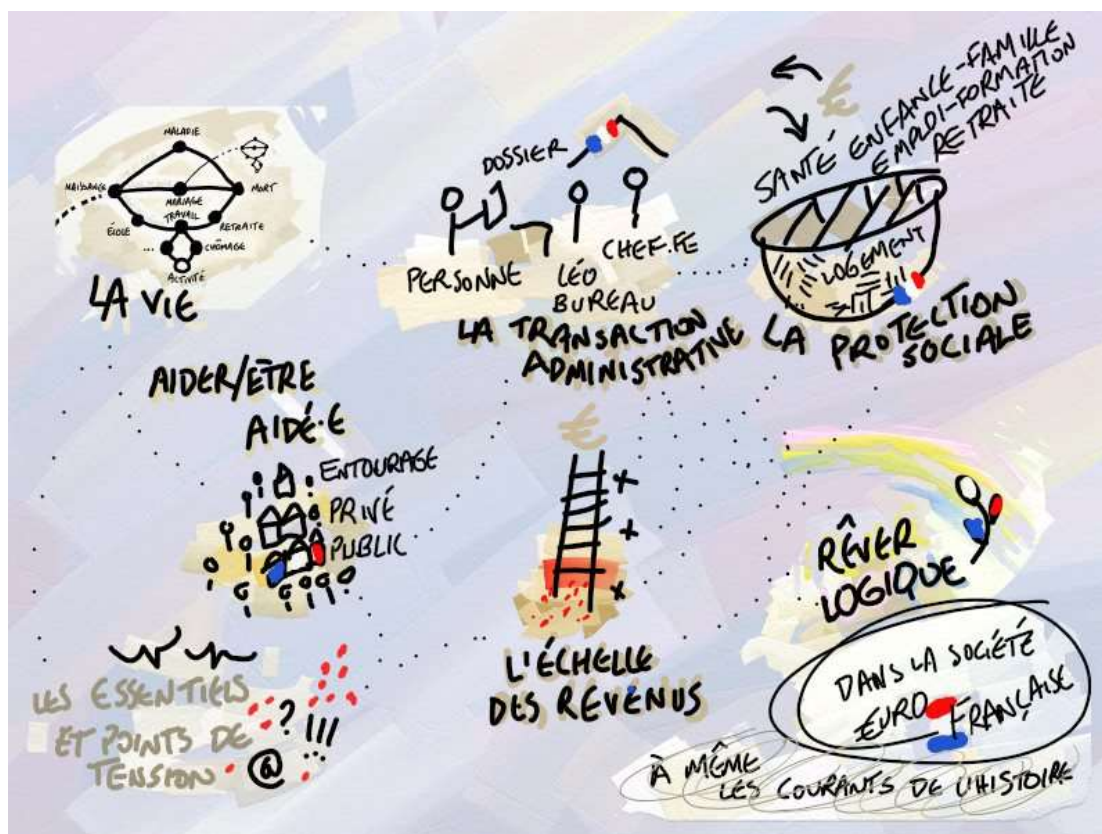 MALADIE
NAISSANCE
MORT
MARIAGE
TRAVAIL
ÉCOLE
RETRAITE
...
CHÔMAGE
ACTIVITÉ
LA VIE
DOSSIER
PERSONNE
LÉO
BUREAU
CHEF.FE
LA TRANSACTION
ADMINISTRATIVE
€
SANTÉ ENFANCE-FAMILLE
EMPLOI-FORMATION
RETRAITE
LOGEMENT
LA PROTECTION
SOCIALE
AIDER/ÊTRE
AIDÉ·E
ENTOURAGE
PRIVÉ
PUBLIC
€
+
+
×
L'ÉCHELLE
DES REVENUS
RÊVER
LOGIQUE
LES ESSENTIELS
ET POINTS DE
TENSION
? !!!
@
DANS LA SOCIÉTÉ
EURO FRANÇAISE
À MÊME
LES COURANTS DE L'HISTOIRE